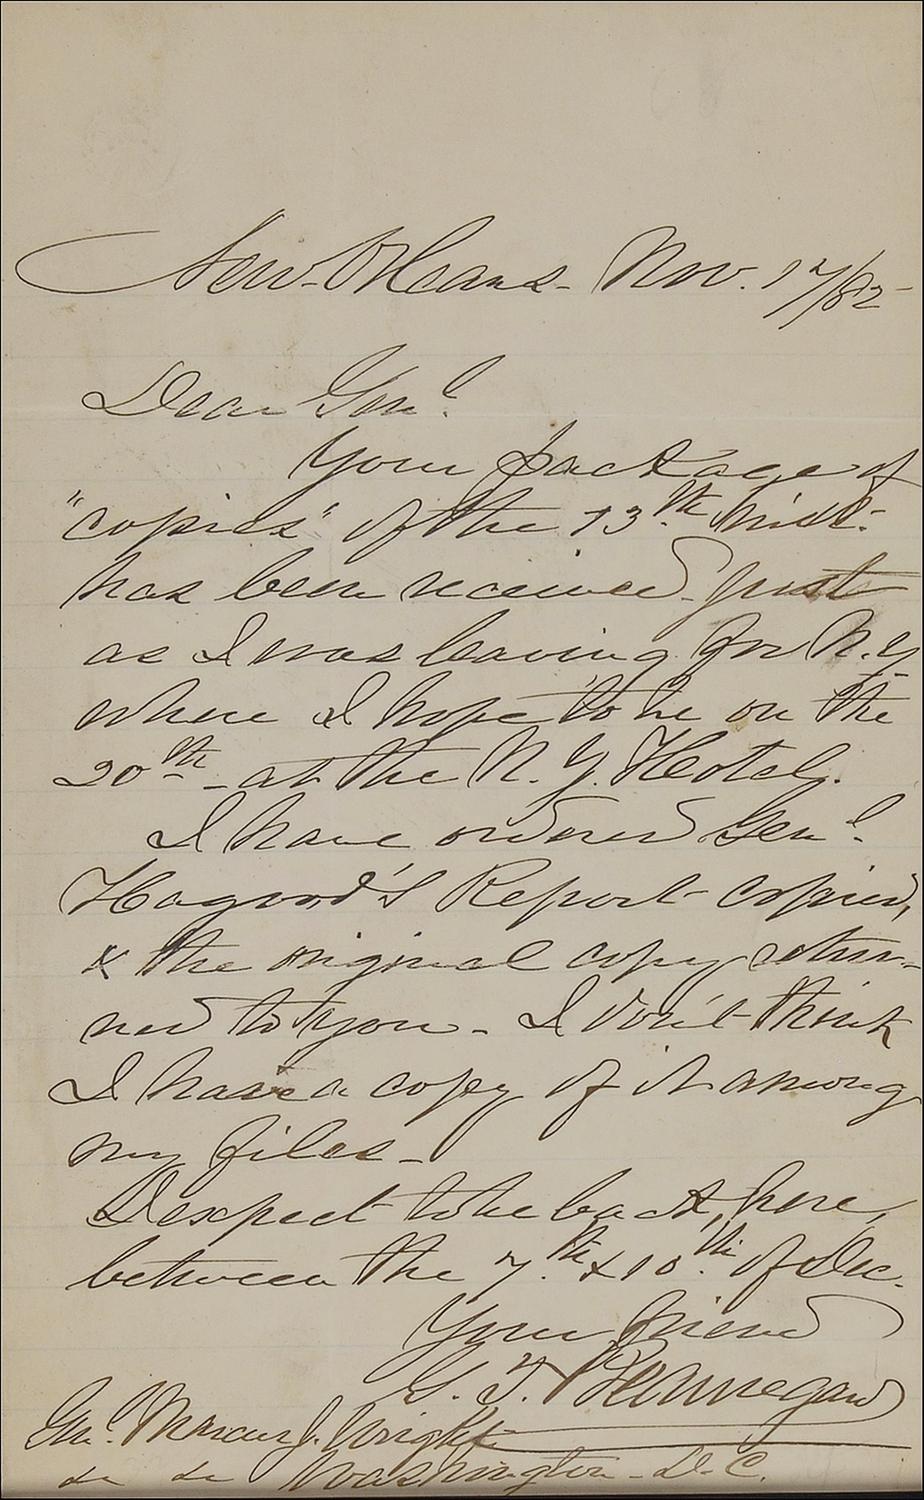 New-Orleans- Nov. 17/82-
Dear Genl.
Your package of
"copies" of the 13th inst.
has been received just
as I was leaving for N.Y.
where I hope to be on the
20th- at the N.Y. Hotel.
I have ordered Genl.
Hagood's Report copied,
& the original copy retur-
ned to you- I don't think
I have a copy of it among
my files-
I expect to be back, here,
between the 7th. & 10th. of Dec.
Your friend
G. T. Beauregard
Genl. Marcus J. Wright
&c &c Washington- D.C.